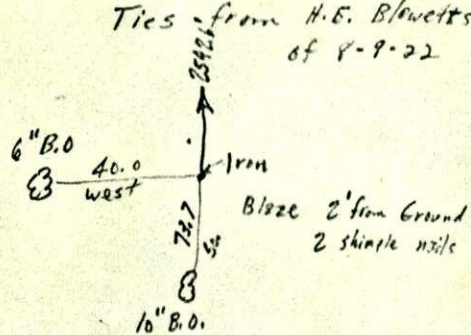 Ties from H.E. Blewetts
of 8-9-22
2542.6'
6" B.O
40.0
west
Iron
73.7
So.
Blaze 2' from Ground
2 shingle nails
10" B.O.